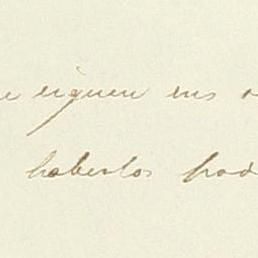 e siguen sus
haberlos pod